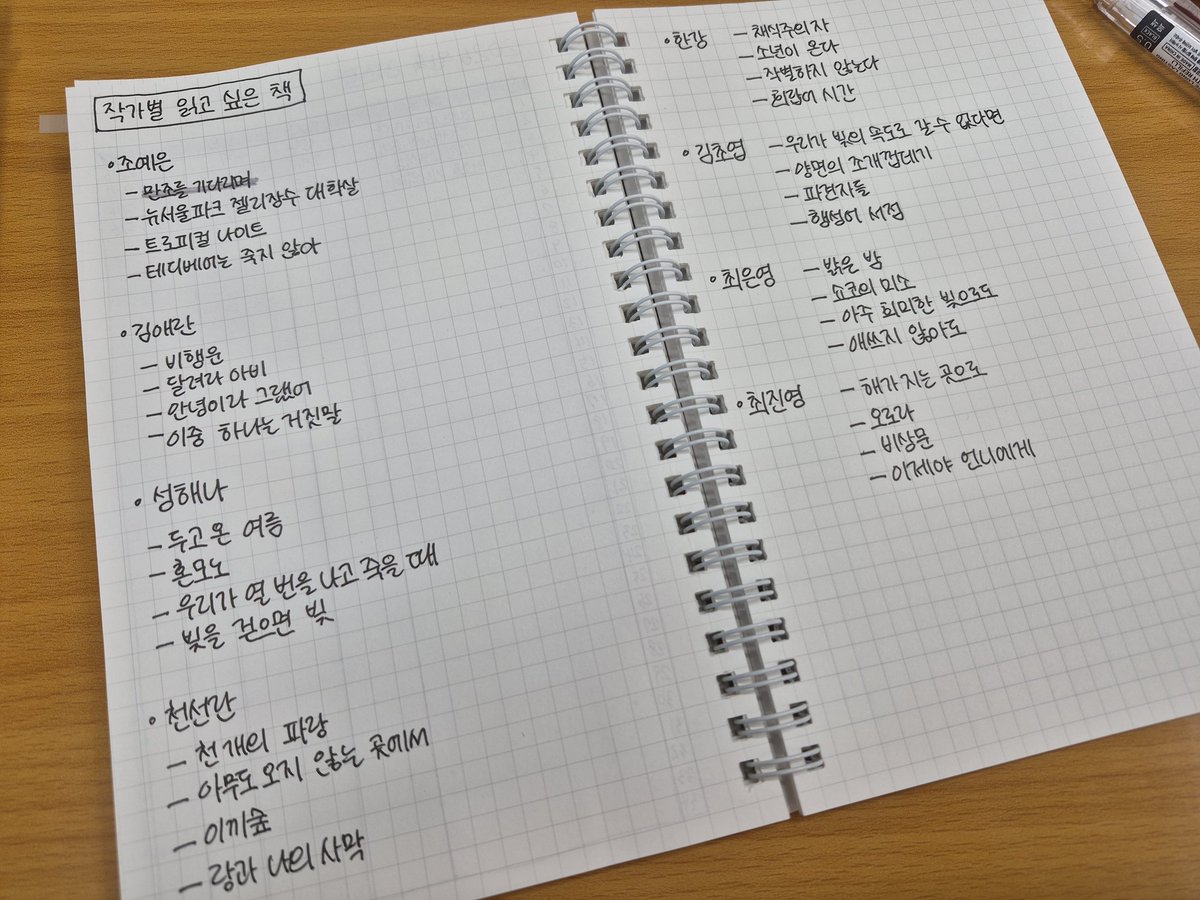 작가별 읽고 싶은 책
•조예은
- 만조를 기다리며
- 뉴서울파크 젤리장수 대학살
- 트로피컬 나이트
- 테디베어는 죽지 않아
•김애란
- 비행운
- 달려라 아비
- 안녕이라 그랬어
- 이중 하나는 거짓말
•성해나
- 두고 온 여름
- 혼모노
- 우리가 열 번을 나고 죽을 때
- 빛을 걷으면 빛
•천선란
- 천 개의 파랑
- 아무도 오지 않는 곳에서
- 이끼숲
- 랑과 나의 사막
•한강 - 채식주의자
- 소년이 온다
- 작별하지 않는다
- 희랍어 시간
•김초엽 - 우리가 빛의 속도로 갈 수 없다면
- 양면의 조개껍데기
- 파견자들
- 행성어 서점
•최은영 - 밝은 밤
- 쇼코의 미소
- 아주 희미한 빛으로도
- 애쓰지 않아도
•최진영 - 해가 지는 곳으로
- 오로라
- 비상문
- 이제야 언니에게